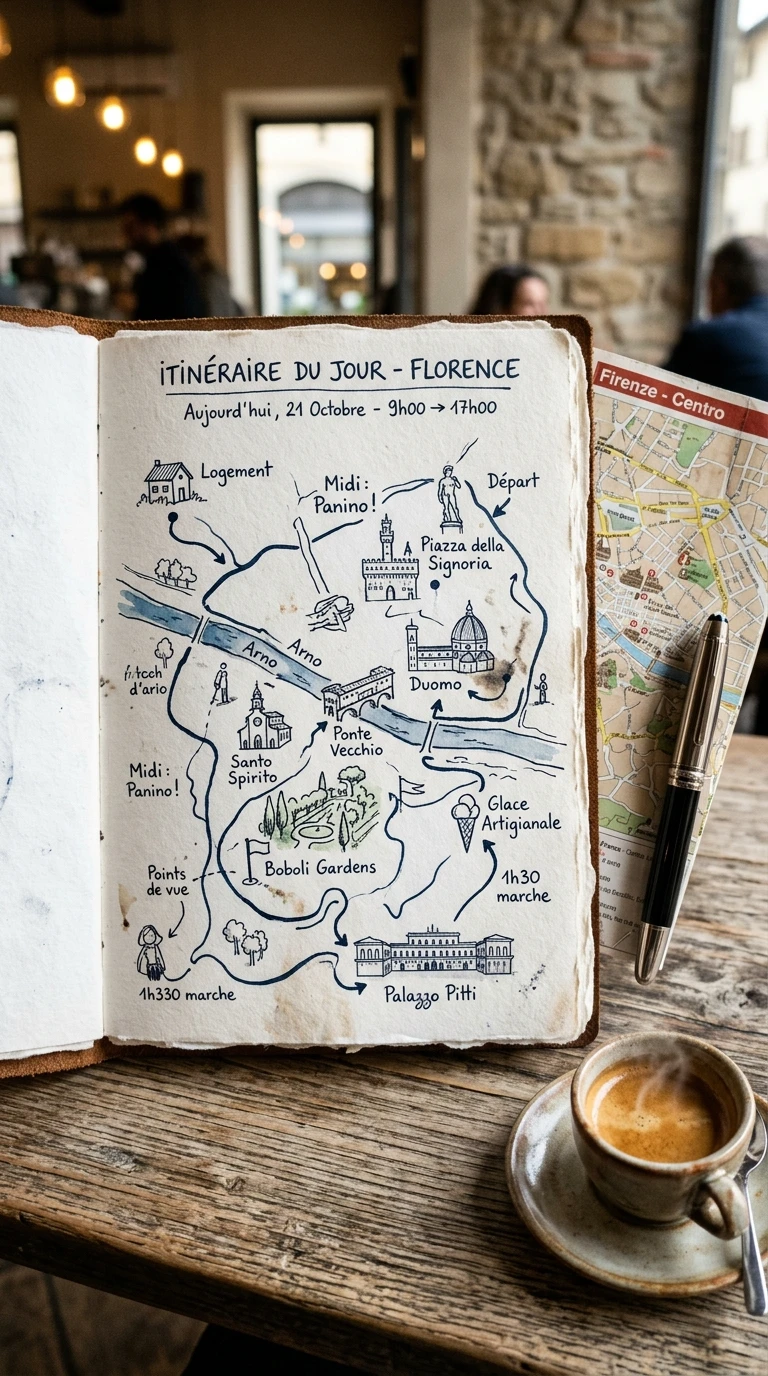 ITINÉRAIRE DU JOUR - FLORENCE
Aujourd'hui, 21 Octobre - 9h00 → 17h00
Logement
Midi :
Panino !
Départ
Piazza della
Signoria
Arno
Arno
Duomo
d'ario
Santo
Spirito
Ponte
Vecchio
Midi :
Panino !
Glace
Artigianale
Points
de vue
Boboli Gardens
1h30
marche
1h330 marche
Palazzo Pitti
Firenze - Centro